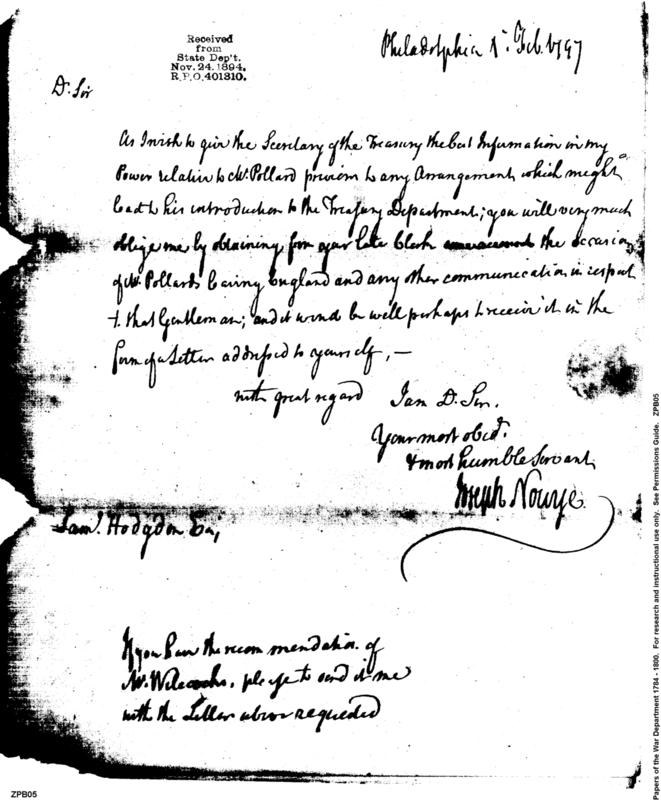 Received
from
State Dep't.
Nov. 24. 1894.
R.P.O. 401310.
Philadelphia 1st. Feb. 1797
Dr. Sir
As I wish to give the Secretary of the Treasury the best Information in my
Power relative to Mr. Pollard previous to any Arrangement which might
lead to his introduction to the Treasury Department; you will very much
oblige me by obtaining from your late Clerk the occasion
of Mr. Pollards leaving England and any other communication in respect
to that Gentleman; and it would be well perhaps to receive it in the
form of a Letter addressed to yourself, —
with great regard I am D. Sir.
Your most obedt.
& most humble Servant
Joseph Nourse
Saml. Hodgdon Esq;
If you have the recommendation of
Mr. Wilcocks, please to send it me
with the Letter above requested
ZPB05
Papers of the War Department 1784 - 1800. For research and instructional use only. See Permissions Guide. ZPB05